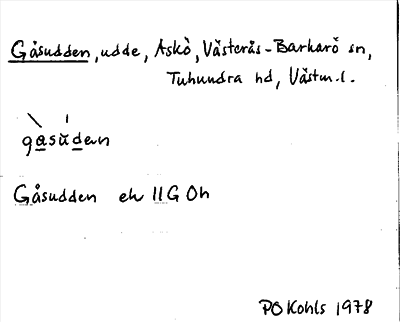 Gåsudden, udde, Askö, Västerås-Barkarö sn,
Tuhundra hd, Västm.l.
gasŭdan
Gåsudden ek 11G 0h
PO Kohls 1978